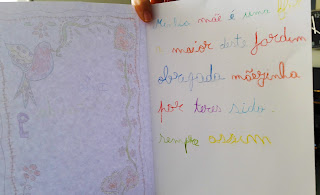 minha mãe é uma flor
a maior deste jardim
obrigada mãezinha
por teres sido
sempre assim